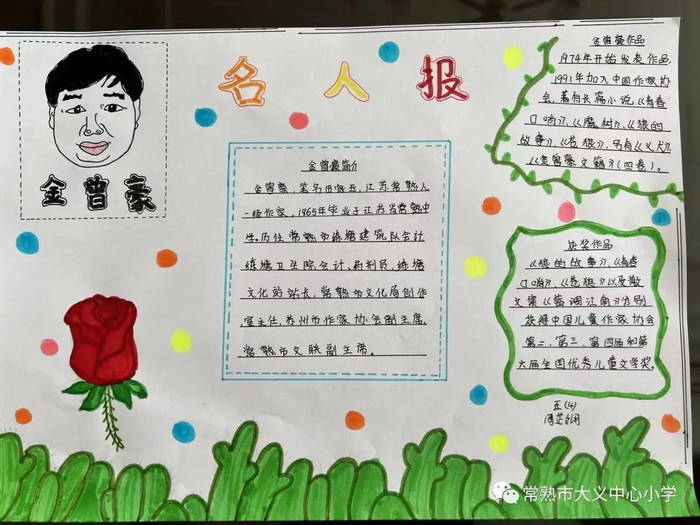 名人报
金曾豪
金曾豪简介
金曾豪,笔名田野丢,江苏常熟人
一级作家。1965年毕业于江苏省常熟中
学。历任常熟市练塘建筑队会计
练塘卫生院会计、药剂员,练塘
文化站站长,常熟市文化局创作
室主任,苏州市作家协会副主席,
常熟市文联副主席。
金曾豪作品
1974年开始发表作品
1991年加入中国作家协
会,著有长篇小说《青春
口哨》、《魔树》、《狼的
故事》、《苍狼》,另有《义犬》
《金曾豪文籍》(四卷)。
获奖作品
《狼的故事》,《青春
口哨》,《苍狼》以及散
文集《蓝调江南》分别
获得中国儿童作家协会
第二、第三、第四届和第
六届全国优秀儿童文学奖。
五(4)
常熟市大义中心小学